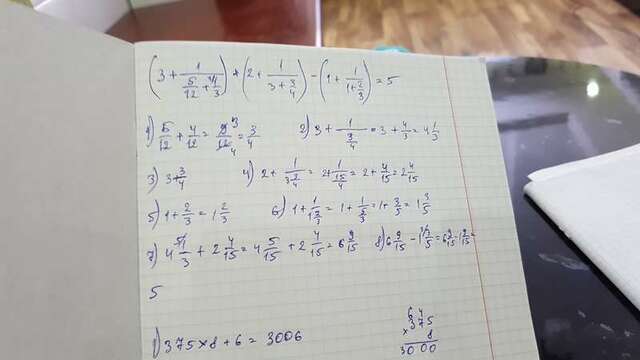 (3 + 1/(5/12 + 4/1/3)) + (2 + 1/(3 + 3/4)) - (1 + 1/(1 + 2/3)) = 5
1) 5/12 + 4/12 = 9/12 = 3/4 2) 3 + 1/(3/4) = 3 + 4/3 = 4 1/3
3) 3 + 3/4 4) 2 + 1/(3 3/4) = 2 + 1/(15/4) = 2 + 4/15 = 2 4/15
5) 1 + 2/3 = 1 2/3 6) 1 + 1/(1 2/3) = 1 + 1/(5/3) = 1 + 3/5 = 1 3/5
7) 4 5/1/3 + 2 4/15 = 4 5/15 + 2 4/15 = 6 9/15 8) 6 9/15 - 1 3/3/5 = 6 9/15 - 1 9/15 =
5
1) 375 × 8 + 6 = 3006
6 4
375
× 8
3000